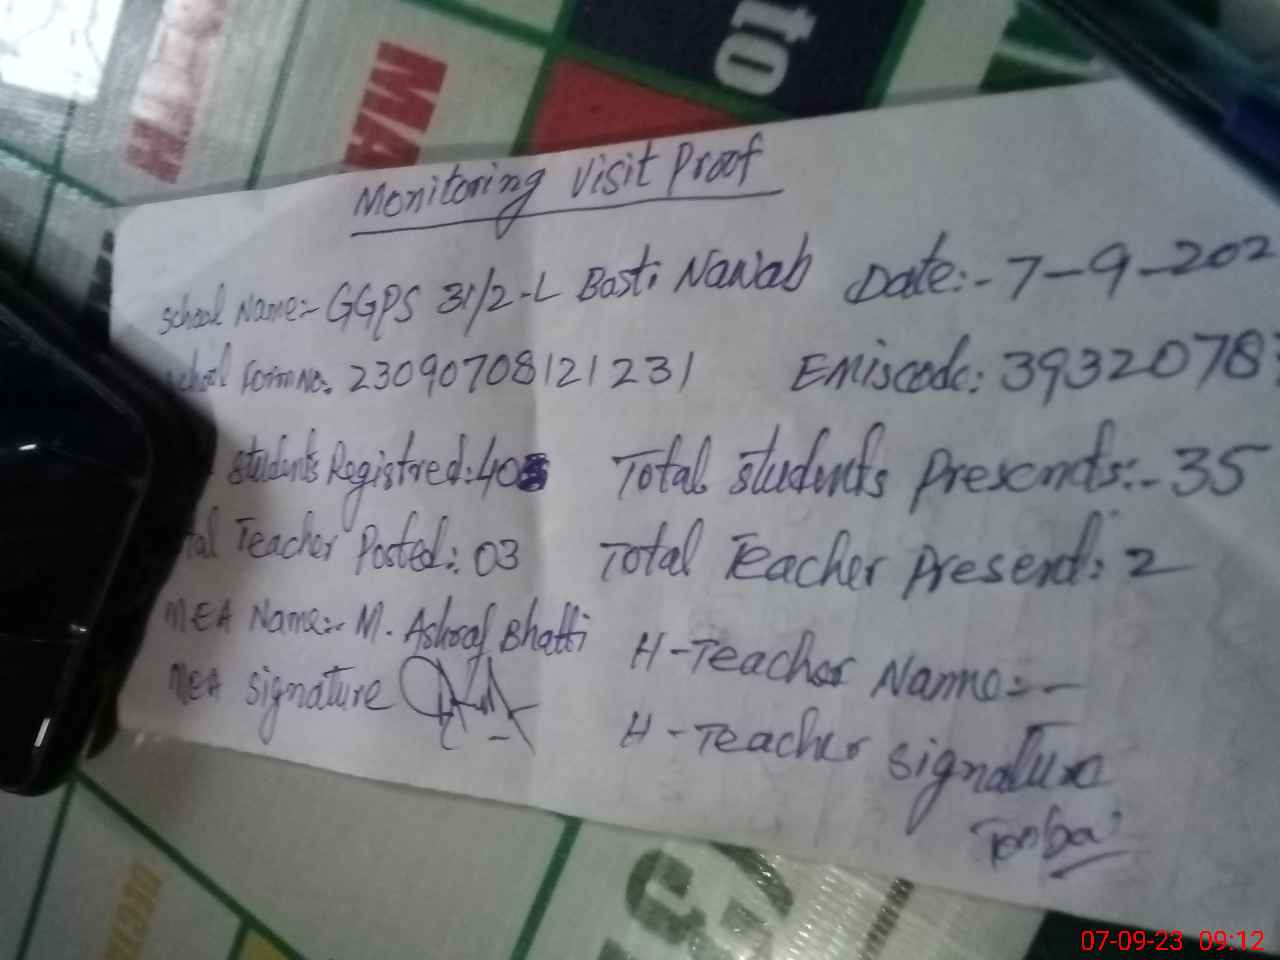 MA
to
Monitoring Visit Proof
School Name:- GGPS 31/2-L Basti Nawab Date:- 7-9-202
School Form No. 23090708121231 Emiscode: 3932078
Students Registred: 40 Total Students Presents:- 35
tal Teacher Posted: 03 Total Teacher Present: 2
MEA Name:- M. Ashraf Bhatti H-Teacher Name:-
MEA Signature H-Teacher Signature
07-09-23 09:12